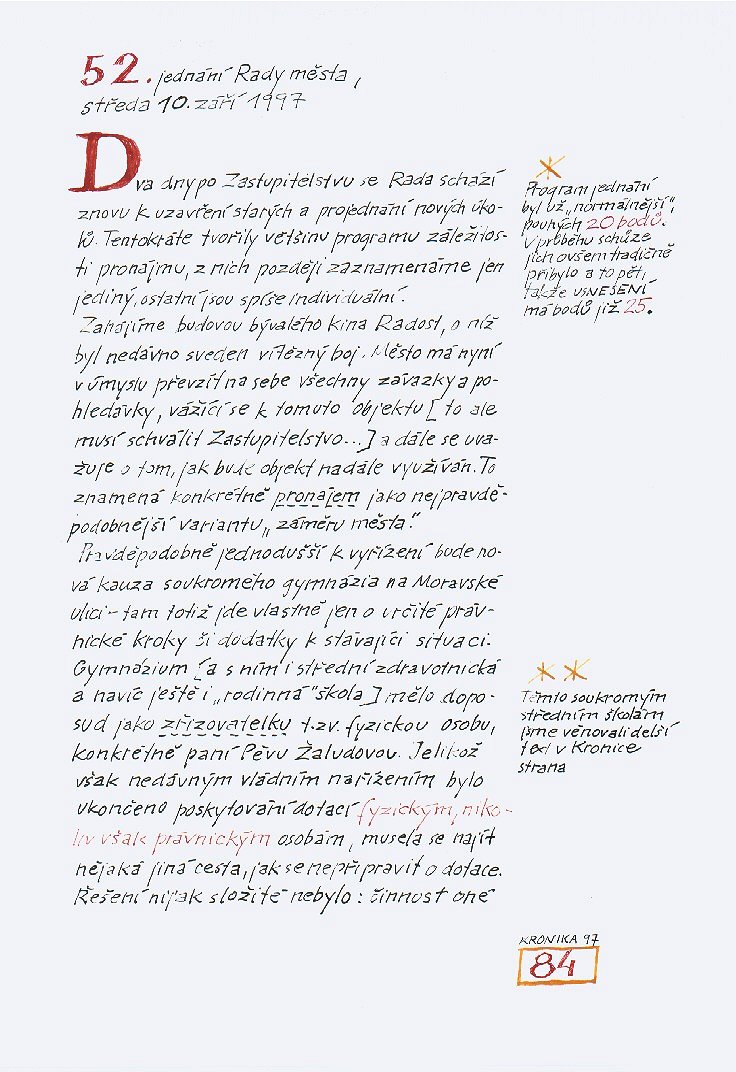 52. jednání Rady města,
středa 10. září 1997
Dva dny po Zastupitelstvu se Rada schází
znovu k uzavření starých a projednání nových úko-
lů. Tentokráte tvořily většinu programu záležitos-
ti pronájmu, z nich později zaznamenáme jen
jediný, ostatní jsou spíše individuální.
Zahájíme budovou bývalého kina Radost, o níž
byl nedávno sveden vítězný boj. Město má nyní
v úmyslu převzít na sebe všechny závazky a po-
hledávky, vážící se k tomuto objektu [to ale
musí schválit Zastupitelstvo...] a dále se uva-
žuje o tom, jak bude objekt nadále využíván. To
znamená konkrétně pronájem jako nejpravdě-
podobnější variantu „záměru města."
Pravděpodobně jednodušší k vyřízení bude no-
vá kauza soukromého gymnázia na Moravské
ulici - tam totiž jde vlastně jen o určité práv-
nické kroky či dodatky k stávající situaci.
Gymnázium [a s ním i střední zdravotnická
a navíc ještě i „rodinná" škola] mělo dopo-
sud jako zřizovatelku t.zv. fyzickou osobu,
konkrétně paní Pévu Žaludovou. Jelikož
však nedávným vládním nařízením bylo
ukončeno poskytování dotací fyzickým, niko-
liv však právnickým osobám, musela se najít
nějaká jiná cesta, jak se nepřipravit o dotace.
Řešení nijak složité nebylo: činnost oné
*
Program jednání
byl už „normálnější",
pouhých 20 bodů.
V průběhu schůze
jich ovšem tradičně
přibylo a to pět,
takže usNESENÍ
má bodů již 25.
* *
Těmto soukromým
středním školám
jsme věnovali delší
text v Kronice
strana
KRONIKA 97
84